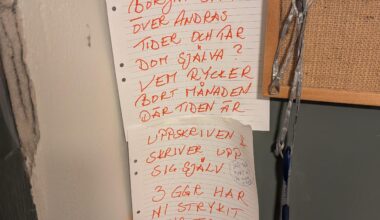 BÖRJAT
ÖVER ANDRAS
TIDER OCH TAR
DOM SJÄLVA?
VEM RYCKER
BORT MÅNADEN
DÄR TIDEN ÄR
UPPSKRIVEN &
SKRIVER UPP
SIG SJÄLV
3 GGR HAR
NI STRYKIT